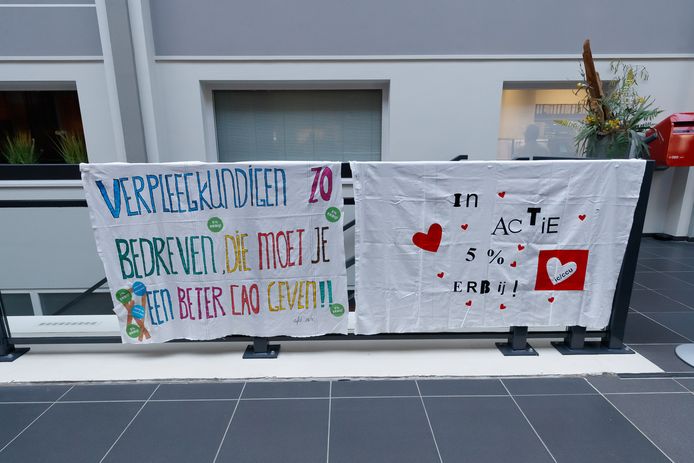 VERPLEEGKUNDIGEN ZO
BEDREVEN, DIE MOET JE
EEN BETER CAO GEVEN!!
In
ACTiE
5%
ERBij!
ic/ccu